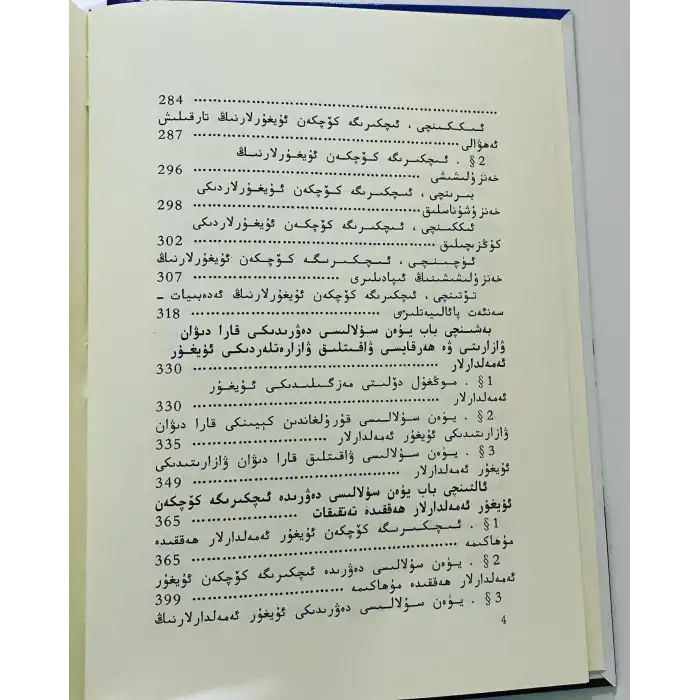 284 ........................................................
ئىككىنچى ، ئىچكىرىگە كۆچكەن ئۇيغۇرلارنىڭ تارقىلىش
ئەھۋالى ........................................................ 287
§2 . ئىچكىرىگە كۆچكەن ئۇيغۇرلارنىڭ
خەنزۇلىشىشى ........................................................ 296
بىرىنچى ، ئىچكىرىگە كۆچكەن ئۇيغۇرلاردىكى
خەنزۇشۇناسلىق ........................................................ 298
ئىككىنچى ، ئىچكىرىگە كۆچكەن ئۇيغۇرلاردىكى
كۇڭزىچىلىق ........................................................ 302
ئۈچىنچى ، ئىچكىرىگە كۆچكەن ئۇيغۇرلارنىڭ
خەنزۇلىشىشىنىڭ ئىپادىلىرى ........................................................ 307
تۆتىنچى ، ئىچكىرىگە كۆچكەن ئۇيغۇرلارنىڭ ئەدەبىيات ـ
سەنئەت پائالىيەتلىرى ........................................................ 318
بەشىنچى باب يۈەن سۇلالىسى دەۋرىدىكى قارا دىۋان
ۋازارىتى ۋە ھەرقايسى ۋاقىتلىق ۋازارەتلەردىكى ئۇيغۇر
ئەمەلدارلار ........................................................ 330
§1 . موڭغۇل دۆلىتى مەزگىلىدىكى ئۇيغۇر
ئەمەلدارلار ........................................................ 330
§2 . يۈەن سۇلالىسى قۇرۇلغاندىن كېيىنكى قارا دىۋان
ۋازارىتىدىكى ئۇيغۇر ئەمەلدارلار ........................................................ 335
§3 . يۈەن سۇلالىسى ۋاقىتلىق قارا دىۋان ۋازارىتىدىكى
ئۇيغۇر ئەمەلدارلار ........................................................ 349
ئالتىنچى باب يۈەن سۇلالىسى دەۋرىدە ئىچكىرىگە كۆچكەن
ئۇيغۇر ئەمەلدارلار ھەققىدە تەتقىقات ........................................................ 365
§1 . ئىچكىرىگە كۆچكەن ئۇيغۇر ئەمەلدارلار ھەققىدە
مۇھاكىمە ........................................................ 365
§2 . يۈەن سۇلالىسى دەۋرىدە ئىچكىرىگە كۆچكەن ئۇيغۇر
ئەمەلدارلار ھەققىدە مۇھاكىمە ........................................................ 399
§3 . يۈەن سۇلالىسى دەۋرىدىكى ئۇيغۇر ئەمەلدارلارنىڭ
4